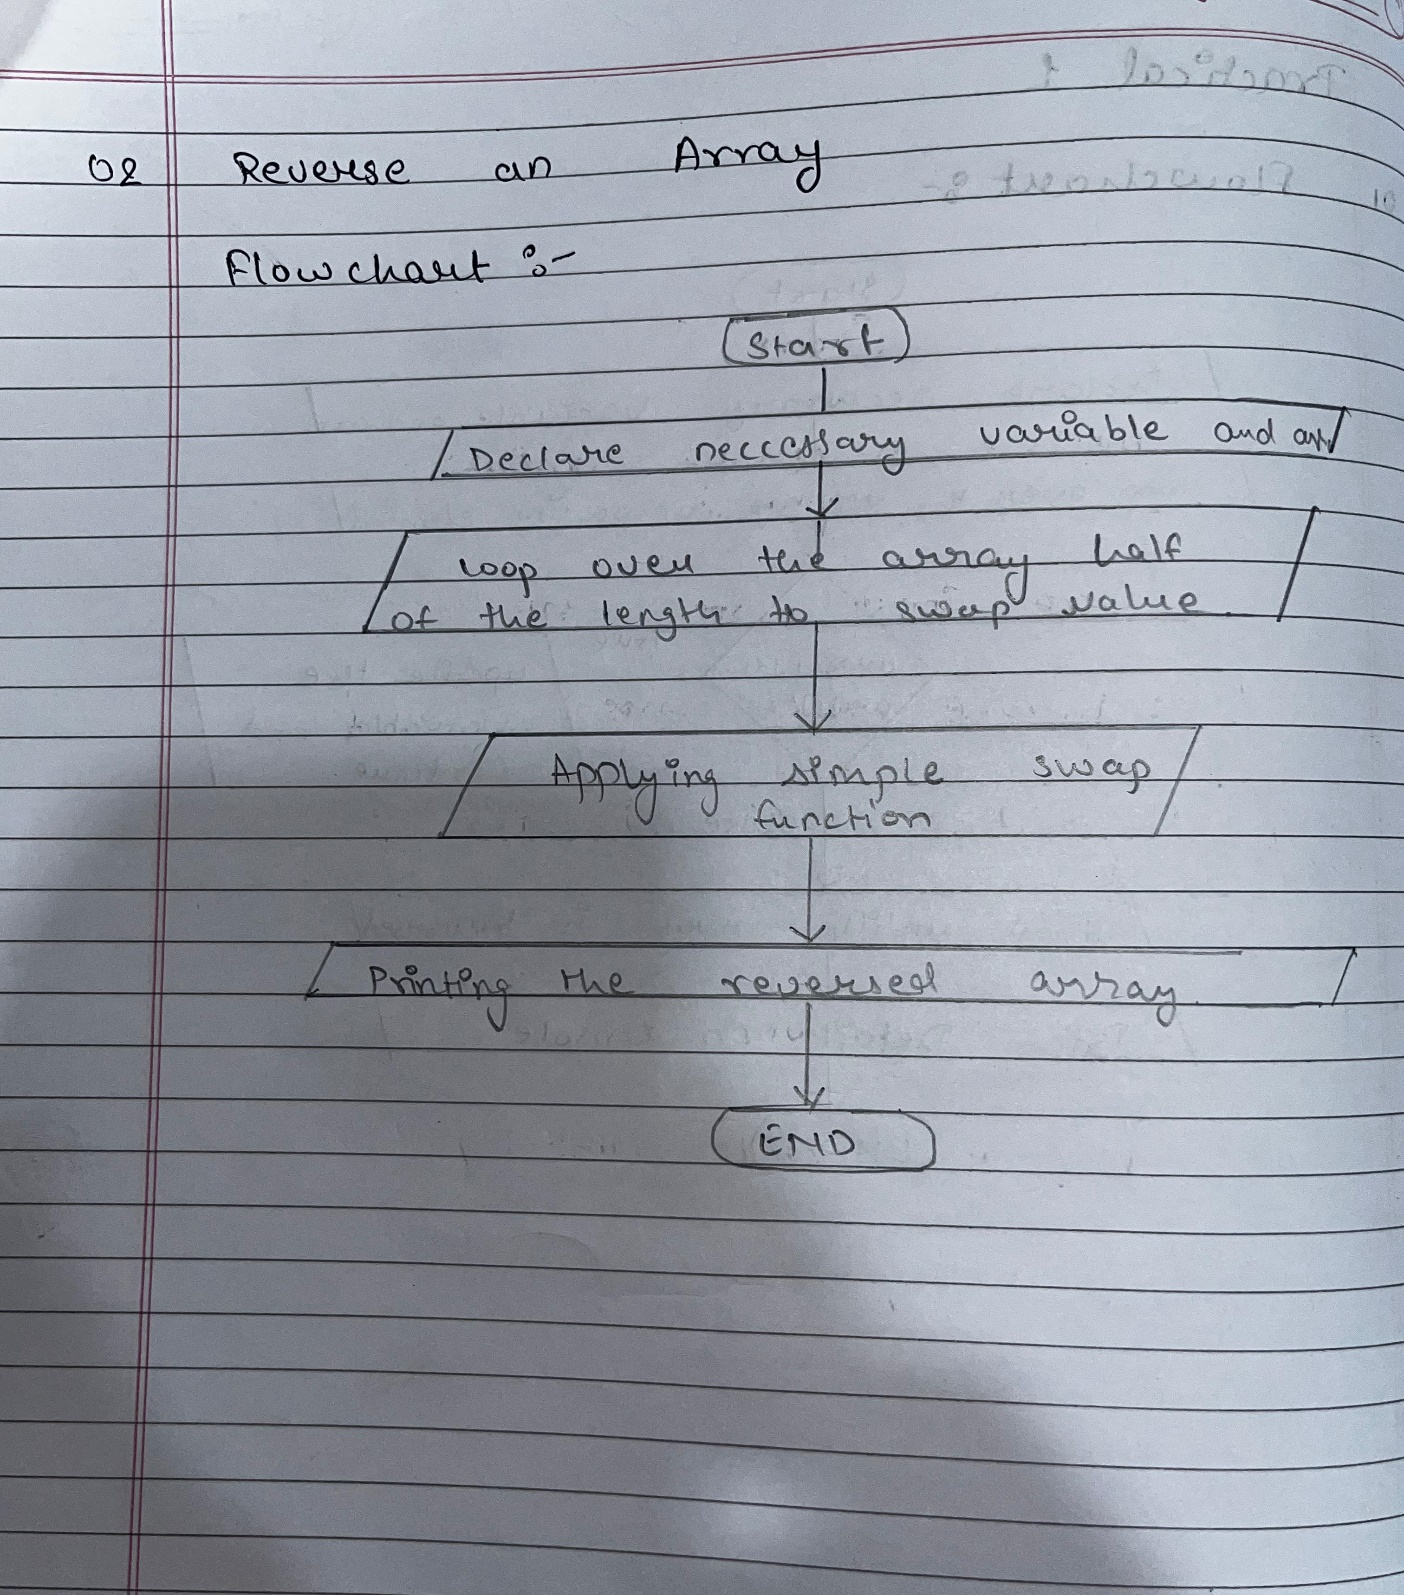 02 Reverse an Array
Flowchart :-
Start
Declare neccessary variable and arr
loop over the array half
of the length to swap value
Applying simple swap
function
Printing the reversed array
END